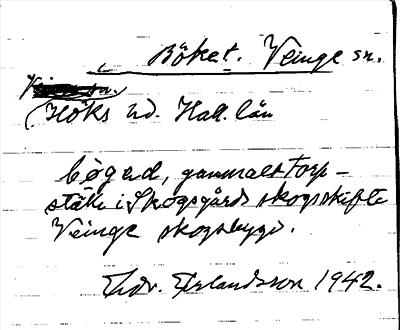 Böket. Veinge sn.
Höks hd. Hall. län
bøged, gammalt torp-
ställe i Skogsgårds skogsskifte
Veinge skogsbygd.
Thdr. Erlandsson 1942.